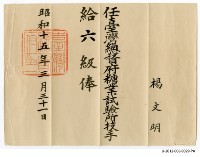 楊文明
任臺灣總督府糖業試驗所技手
給六級俸
昭和十五年三月三十一日